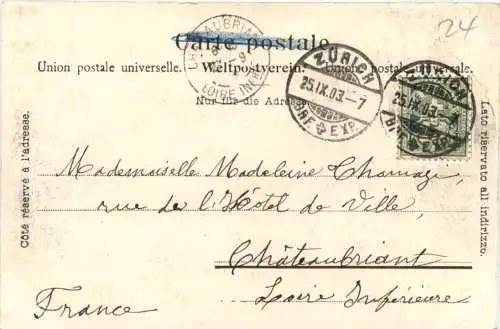 24
Carte postale.
Union postale universelle. Weltpostverein. Unione postale universale.
Nur für die Adresse
CHATEAUBRIANT
LOIRE INFRE
ZÜRICH
25.IX.03.-7
BRF. EXP.
ZÜRICH
25.IX.03.-7
BRF. EXP.
Côté réservé à l'adresse.
Lato riservato all indirizzo.
Mademoiselle Madeleine Chamagi,
rue de l'Hôtel de Ville,
Châteaubriant
Loire Inférieure
France